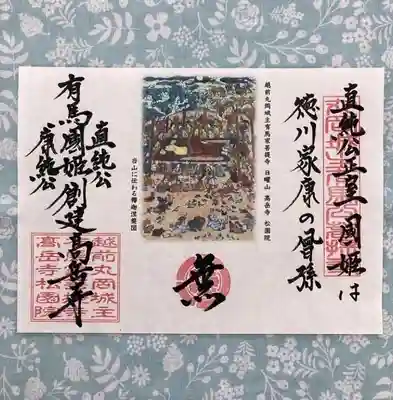 直純公正室 國姫は
徳川家康の曾孫
越前丸岡城主有馬家菩提寺 日曜山 高岳寺 松園院
当山に伝わる釋迦涅槃図
直純公
康純公
有馬國姫創建高岳寺
越前丸岡城主
高岳寺松園院